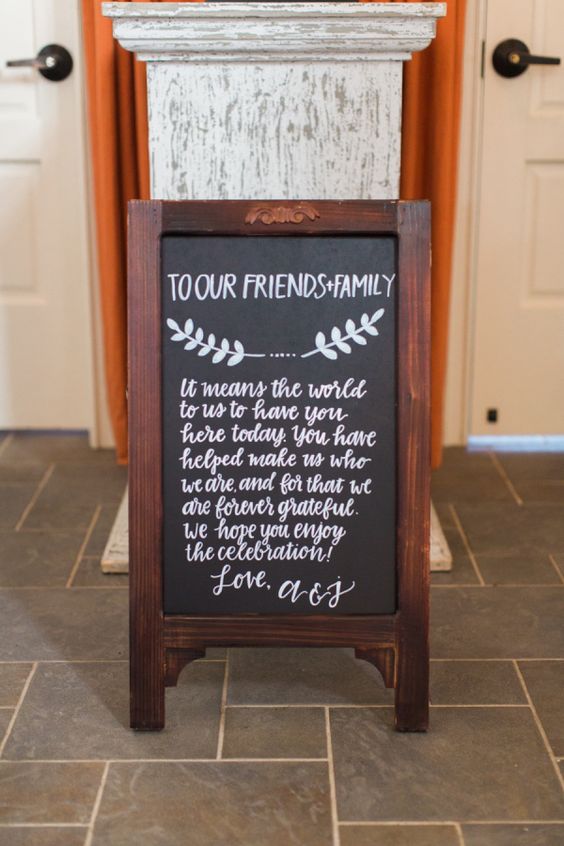 TO OUR FRIENDS+FAMILY
It means the world
to us to have you
here today. You have
helped make us who
we are, and for that we
are forever grateful.
We hope you enjoy
the celebration!
Love, a & j